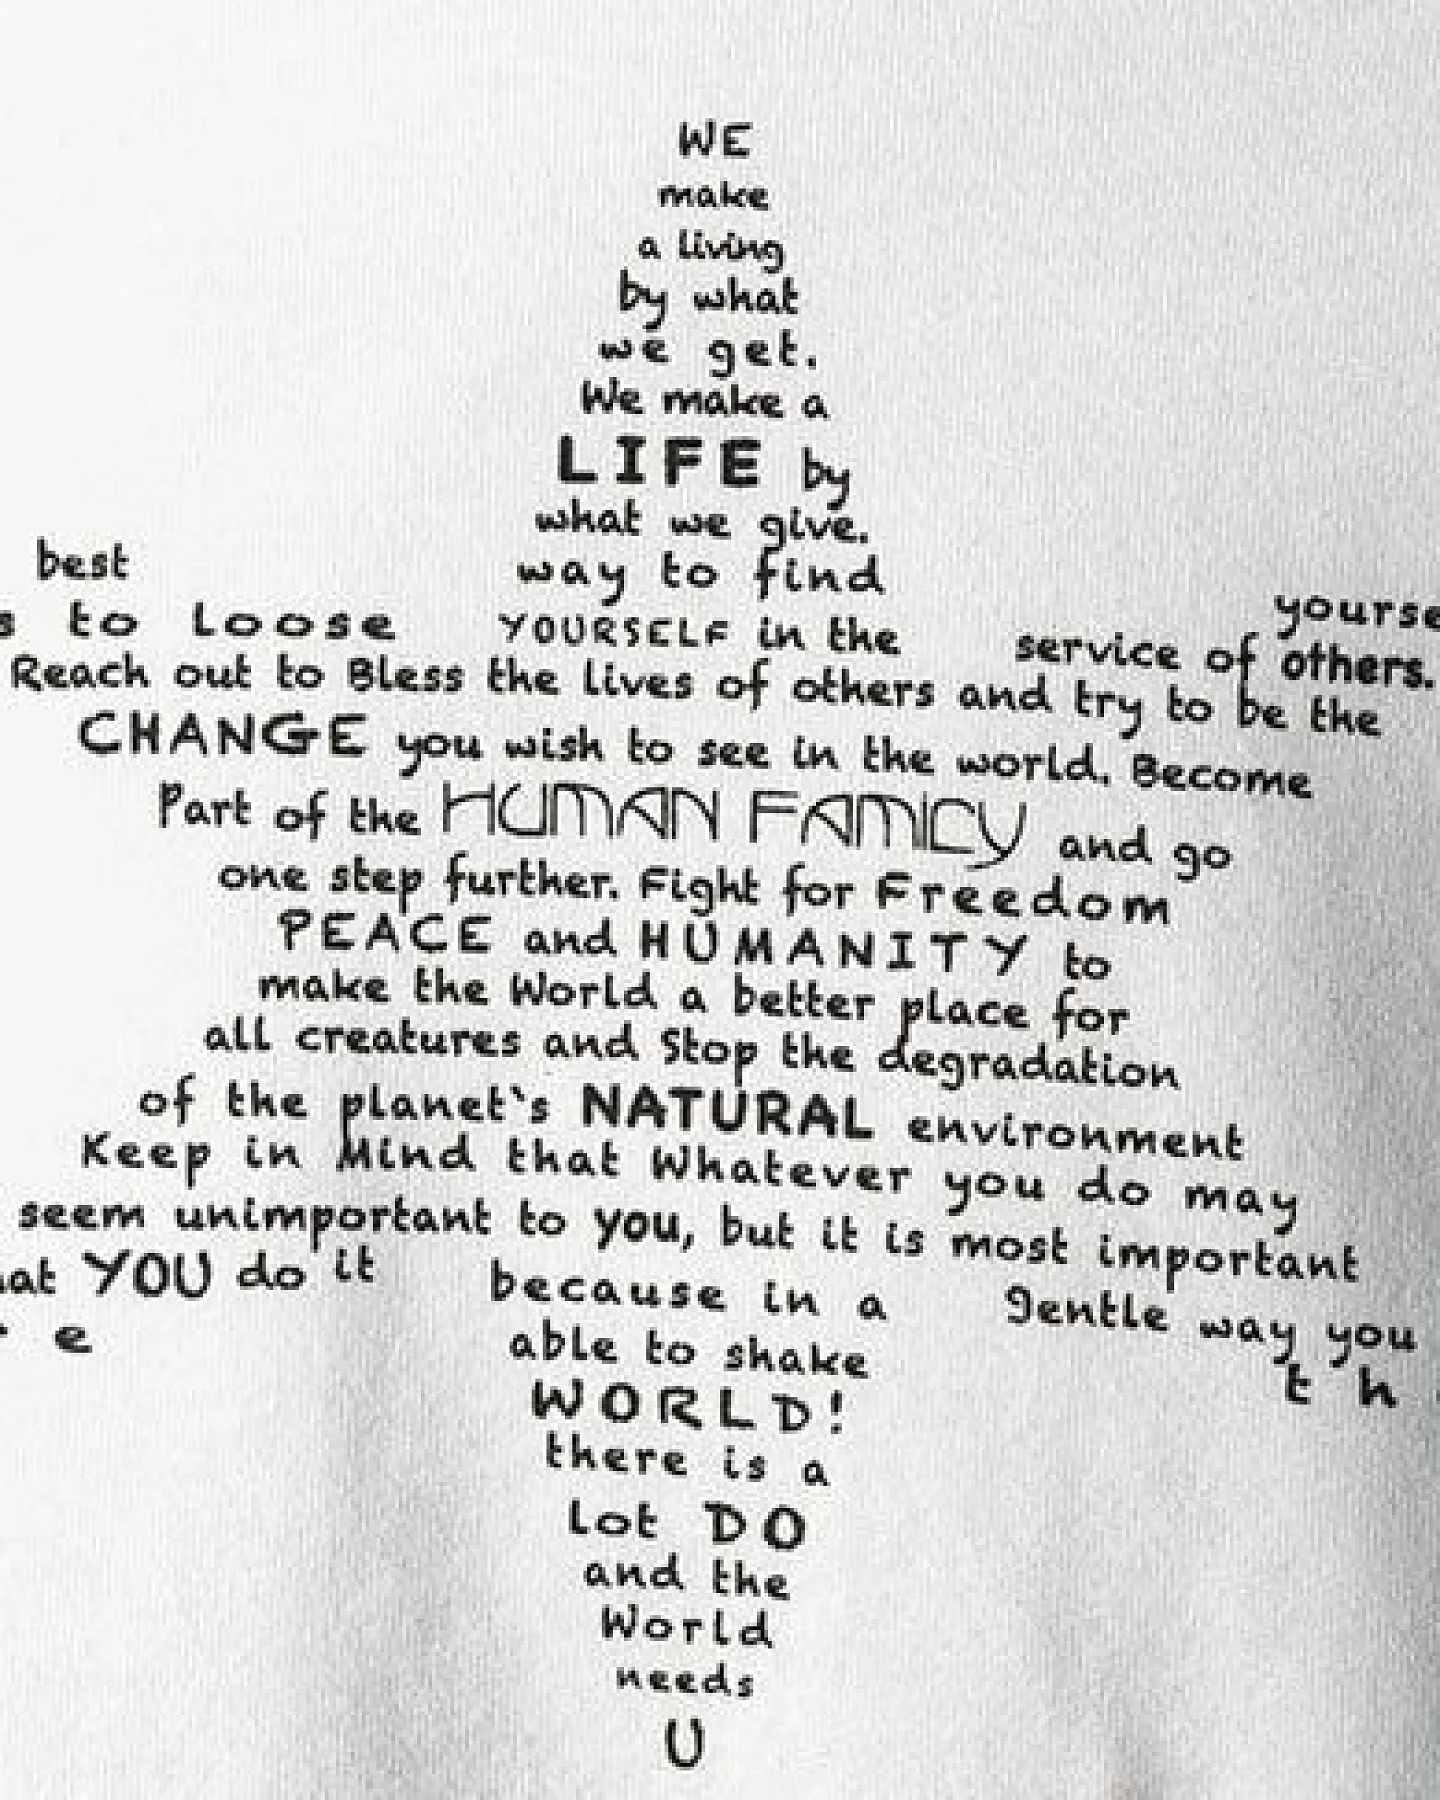 WE
make
a living
by what
we get.
We make a
LIFE by
what we give.
best way to find
to Loose YOURSELF in the service of others.
Reach out to Bless the lives of others and try to be the
CHANGE you wish to see in the world. Become
Part of the HUMAN FAMILY and go
one step further. Fight for Freedom
PEACE and HUMANITY to
make the World a better place for
all creatures and Stop the degradation
of the planet`s NATURAL environment
Keep in Mind that Whatever you do may
seem unimportant to you, but it is most important
YOU do it because in a gentle way you
able to shake
WORLD!
there is a
Lot DO
and the
World
needs
U